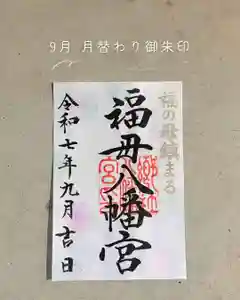 9月 月替わり御朱印
福の母鎮まる
福母八幡宮
令和七年九月吉日